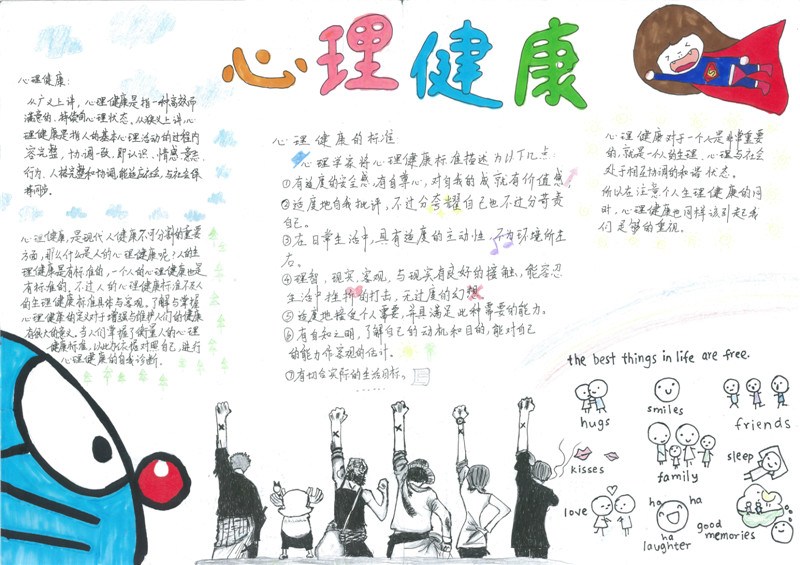 心理健康
心理健康:
从广义上讲,心理健康是指一种高效而
满意的、持续的心理状态。从狭义上讲,心
理健康是指人的基本心理活动的过程内
容完整,协调一致,即认识、情感、意志、
行为、人格完整和协调,能适应社会,与社会保
持同步。
心理健康,是现代人健康不可分割的重要
方面,那么什么是人的心理健康呢?人的生
理健康是有标准的,一个人的心理健康也是
有标准的。不过人的心理健康标准不及人
的生理健康标准具体与客观。了解与掌握
心理健康的定义对于增强与维护人们的健康
有很大的意义。当人们掌握了衡量人的心理
健康标准,以此为依据对照自己,进行
心理健康的自我诊断。
心理健康的标准:
心理学家将心理健康标准描述为以下几点:
①有适度的安全感,有自尊心,对自我的成就有价值感。
②适度地自我批评,不过分夸耀自己也不过分苛责
自己。
③在日常生活中,具有适度的主动性,不为环境所左
右。
④理智,现实,客观,与现实有良好的接触,能容忍
生活中挫折的打击,无过度的幻想。
⑤适度地接受个人需要,并具满足此种需要的能力。
⑥有自知之明,了解自己的动机和目的,能对自己
的能力作客观的估计。
⑦有切合实际的生活目标。
......
心理健康对于一个人是非常重要
的,就是一个人的生理、心理与社会
处于相互协调的和谐状态。
所以在注意个人生理健康的同
时,心理健康也同样该引起我
们足够的重视。
the best things in life are free.
hugs
smiles
friends
kisses
family
sleep
love
ha
ha
ha
laughter
good
memories